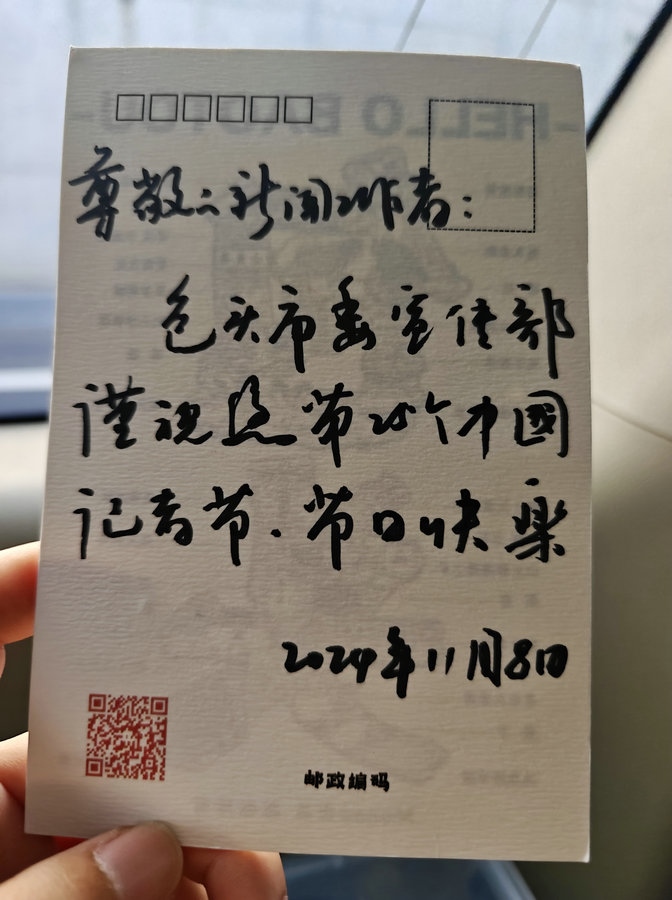 尊敬的新闻工作者：
包头市委宣传部
谨祝您第25个中國
记者节、节日快樂
2024年11月8日
邮政编码